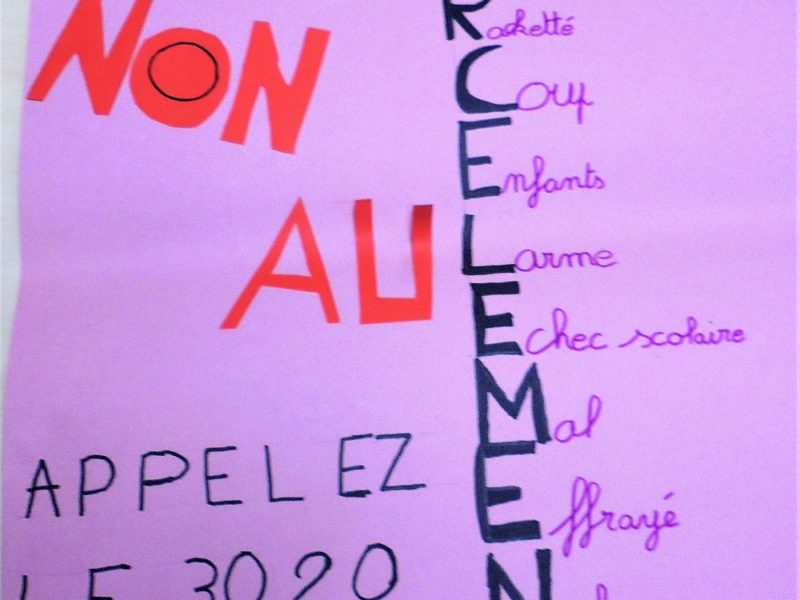 NON
AU
APPELEZ
LE 3020
Racketté
Coup
Enfants
Larme
Echec scolaire
Mal
Effrayé
N